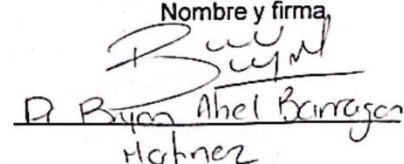 Nombre y firma
D Bryan Abel Barragan
Martinez